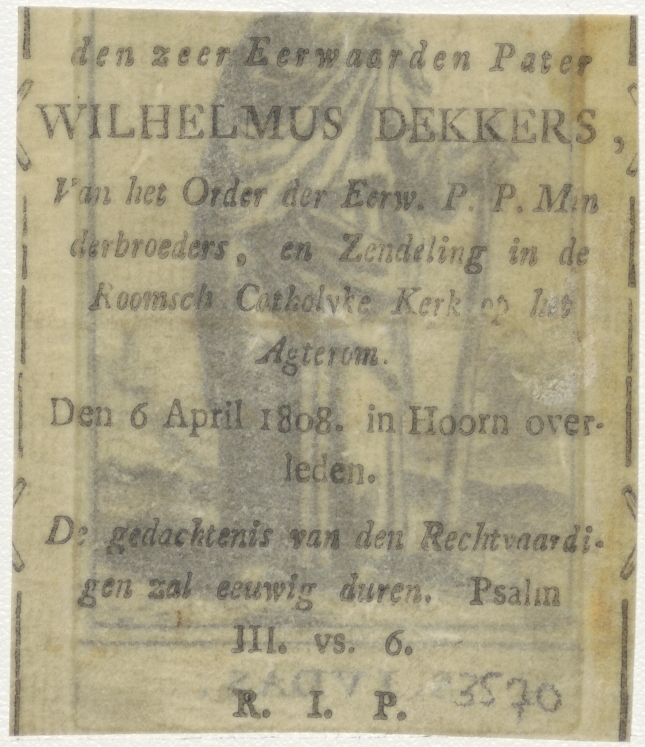 den zeer Eerwaarden Pater
WILHELMUS DEKKERS,
Van het Order der Eerw. P. P. Min
derbroeders, en Zendeling in de
Roomsch Catholyke Kerk op het
Agterom.
Den 6 April 1808. in Hoorn over-
leden.
De gedachtenis van den Rechtvaardi-
gen zal eeuwig duren. Psalm
III. vs. 6.
R. I. P. 3570